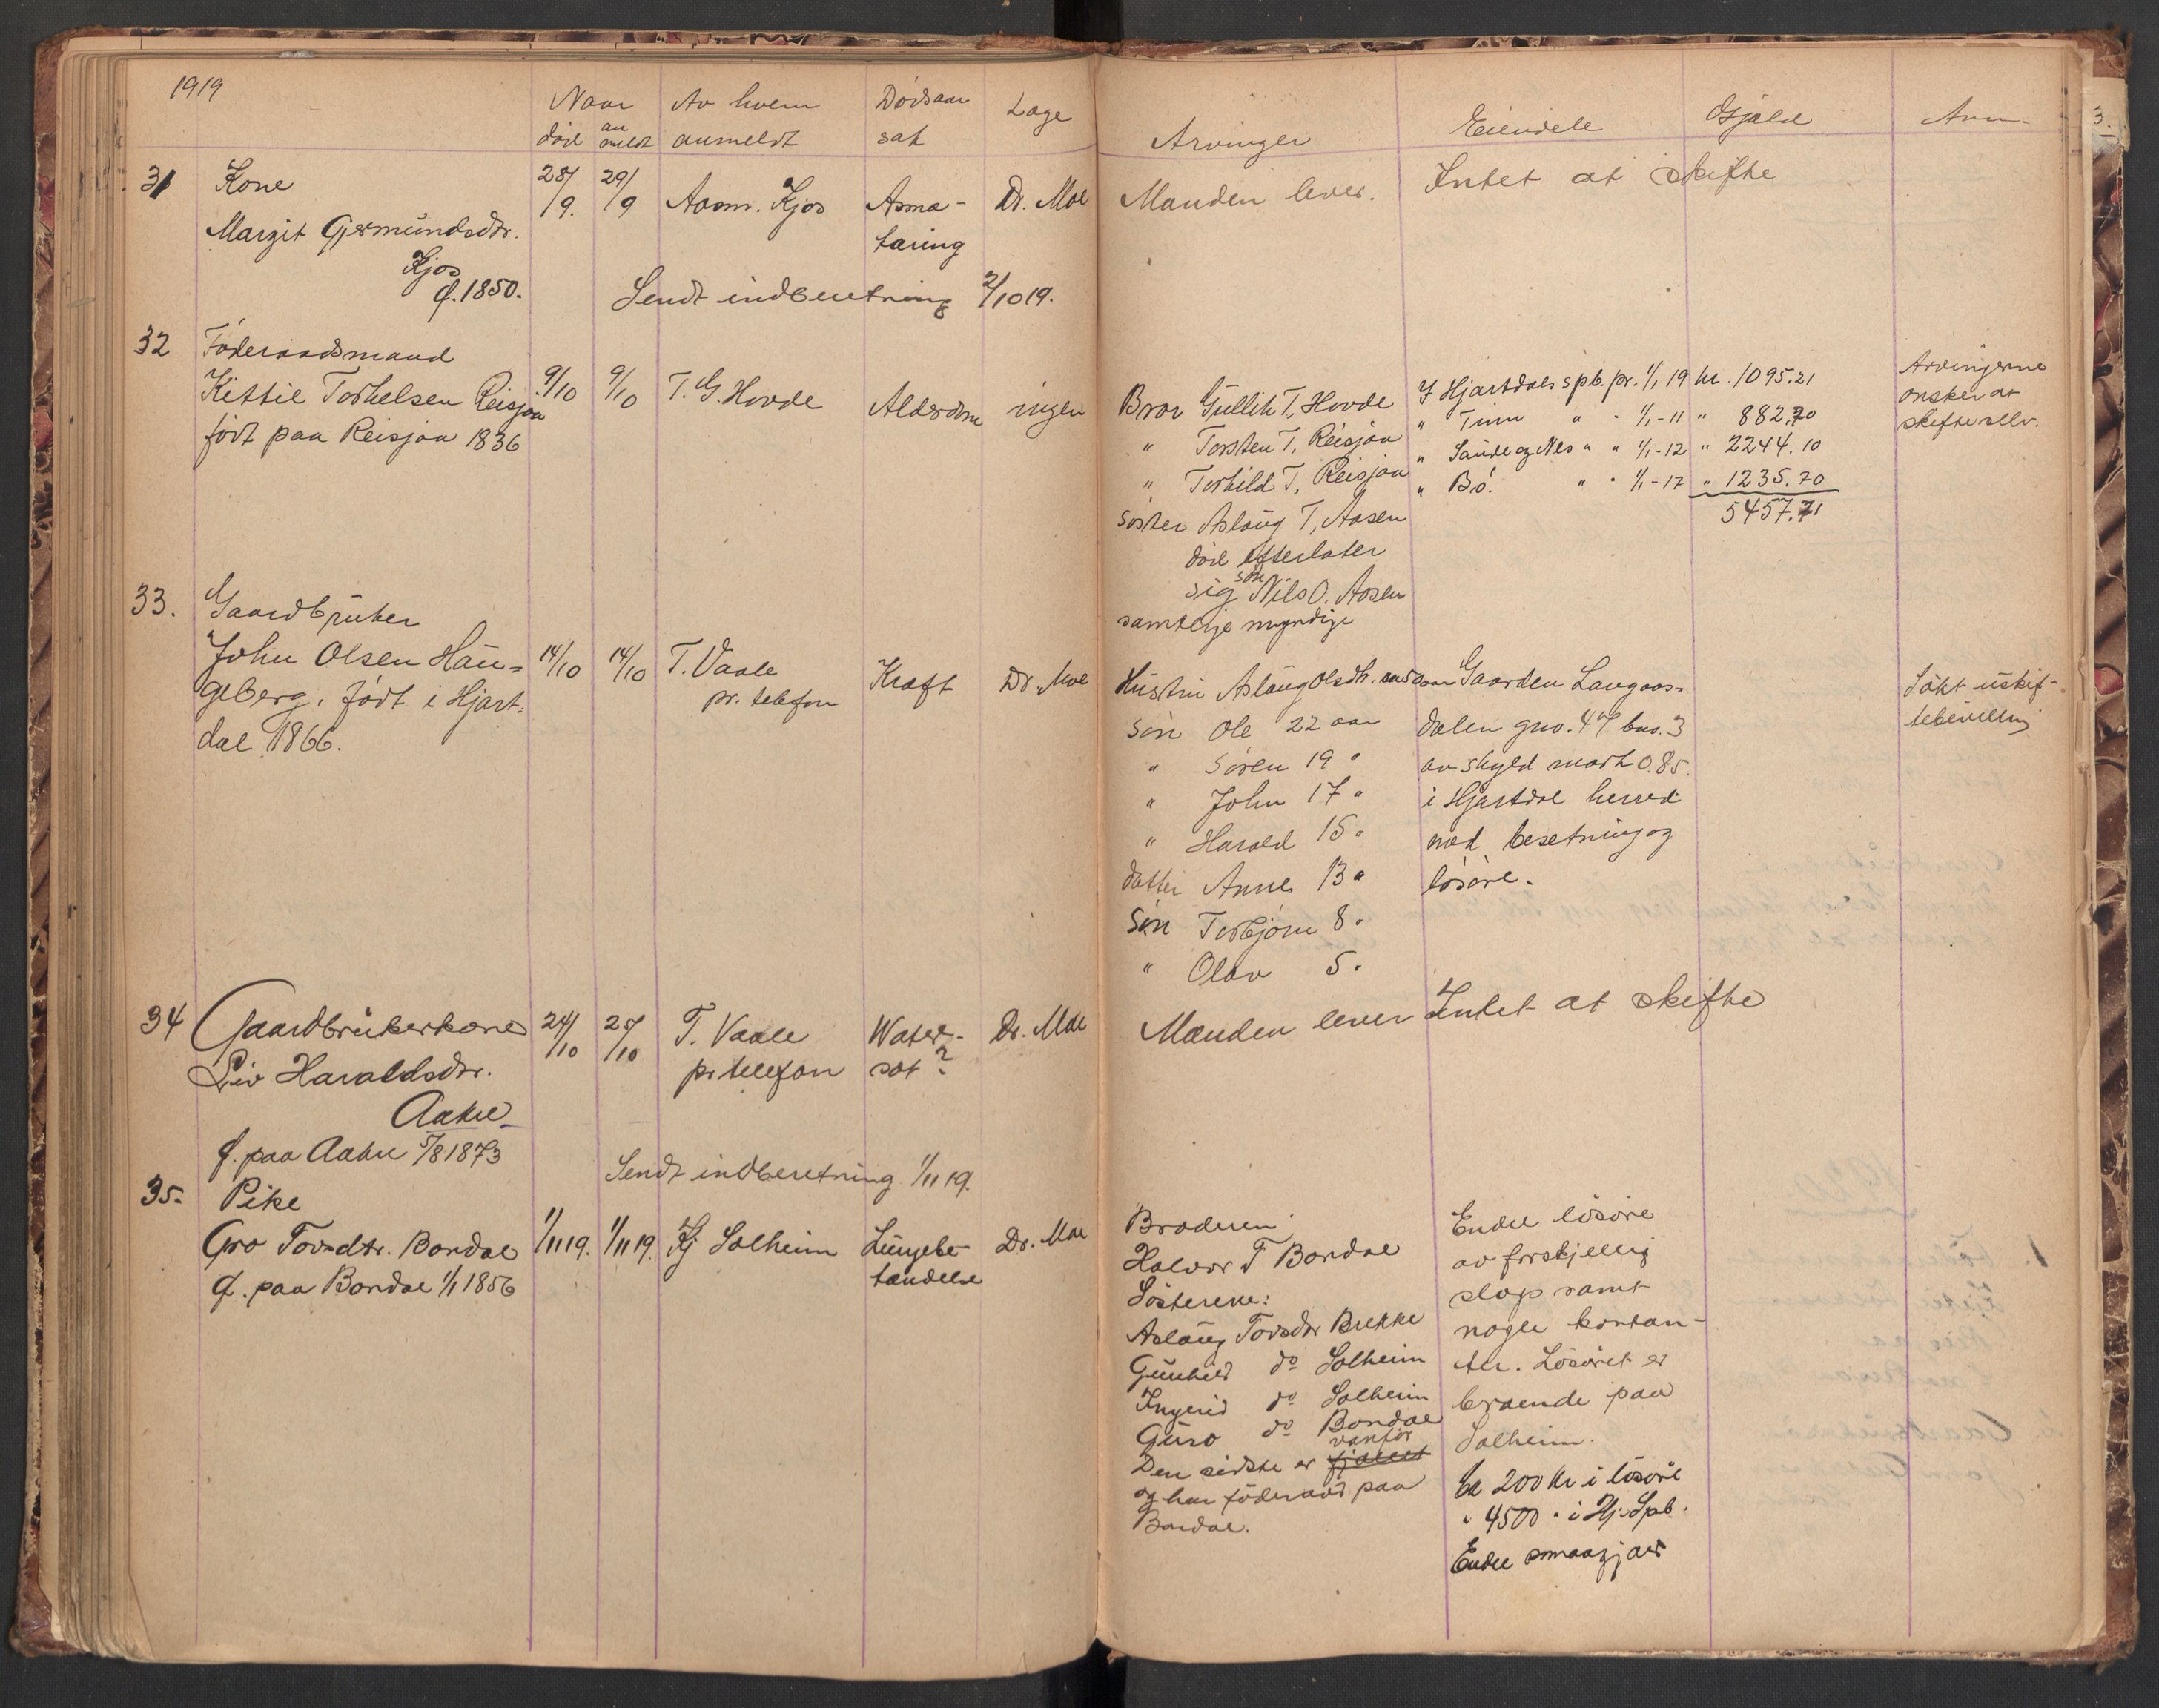 1919
Naar Av hvem Dødsaar Læge
død an meldt anmeldt sak
31 Kone 28/9. 29/9 Aasm. Kjos Asma- Dr. Moe
Margit Gjermundsdtr. tæring
Kjos
f. 1850. Sendt indberetning 2/10 19.
32 Føderaadsmand
Kittil Torkelsen Reisjaa 9/10 9/10 T. G. Hovde Alderdom ingen
født paa Reisjaa 1836
33. Gaardbruker
John Olsen Hau- 14/10 14/10 T. Vaale Kræft Dr. Moe
geberg, født i Hjart- pr. telefon
dal 1866.
34 Gaardbrukerkone 24/10 25/10 T. Vaale Water- Dr. Moe
Liv Haraldsdtr. pr telefon sot?
Aakre
f. paa Aakre 5/8 1873
Sendt indberetning 1/11 19.
35. Pike
Gro Tovsdtr. Bondal 1/11 19. 1/11 19. Kj Solheim Lungebe- Dr. Moe
f. paa Bondal 1/1 1856 tændelse
Arvinger Eiendele Gjæld Anm.
Manden lever. Intet at skifte
Bror Gullik T. Hovde I Hjartdals spb. pr. 1/1 19 kr. 1095.21 Arvingerne
" Torsten T. Reisjaa " Tinn " " 1/1-11 " 882.70 ønsker at
" Torkild T. Reisjaa " Saude og Nes " " 1/1-12 " 2244.10 skifte selv.
Søster Aslaug T. Aasen " Bø. " " 1/1-17 " 1235.70
død efterlater 5457.71
sig søn Nils O. Aasen
samtlige myndige
Hustru Aslaug Olsdtr. Gaarden Langaas- Søkt uskif-
Søn Ole 22 aar dalen gno. 47 bno. 3 tebevilling
" Søren 19 " av skyld mark 0.85.
" John 17 " i Hjartdal herred
" Harald 15 " med besetning og
datter Anne 13 " løsøre.
Søn Torbjørn 8 "
" Olav 5 "
Manden lever Intet at skifte
Broderen Endel løsøre
Halvor T Bondal av forskjellig
Søsterene: slag samt
Aslaug Tovsdtr Brekke nogle kontan-
Gunhild do Solheim ter. Løsøret er
Ingerid do Solheim beroende paa
Guro do Bondal Solheim.
Den sidste er vanfør
og har føderaad paa Ca 200 kr i løsøre
Bondal. " 4500 " i Hj. Spb.
Endel smaagjæld